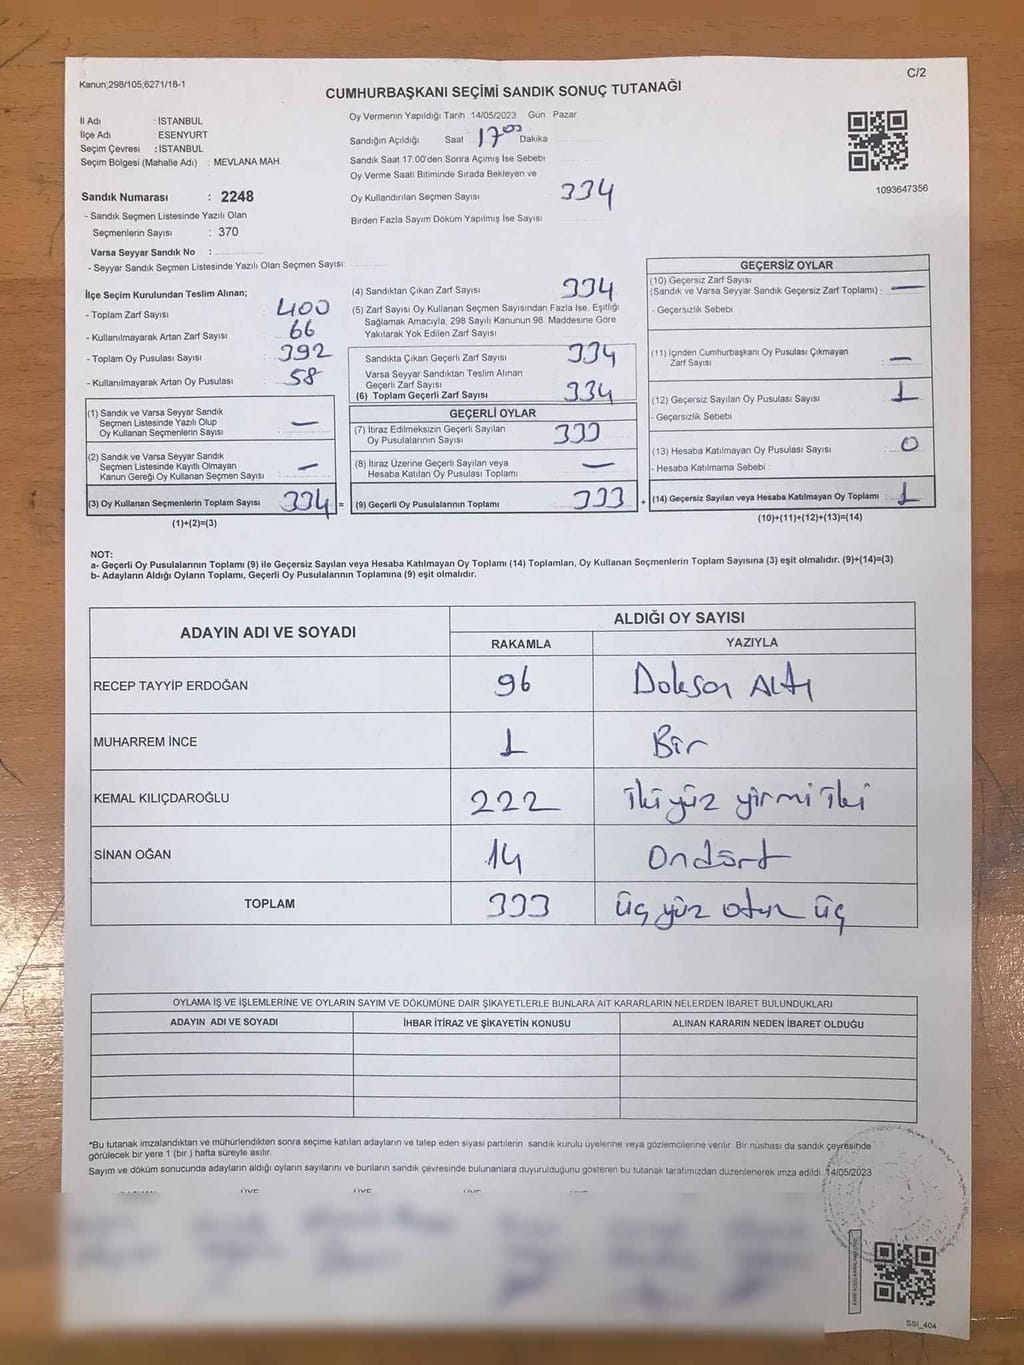 Kanun;298/105;6271/18-1
C/2
CUMHURBAŞKANI SEÇİMİ SANDIK SONUÇ TUTANAĞI
İl Adı : İSTANBUL
İlçe Adı : ESENYURT
Seçim Çevresi : İSTANBUL
Seçim Bölgesi (Mahalle Adı) : MEVLANA MAH.
Sandık Numarası : 2248
- Sandık Seçmen Listesinde Yazılı Olan
Seçmenlerin Sayısı : 370
Varsa Seyyar Sandık No :
- Seyyar Sandık Seçmen Listesinde Yazılı Olan Seçmen Sayısı:
Oy Vermenin Yapıldığı Tarih 14/05/2023 Gün Pazar
Sandığın Açıldığı Saat 17 00 Dakika
Sandık Saat 17:00'den Sonra Açımış İse Sebebi
Oy Verme Saati Bitiminde Sırada Bekleyen ve
Oy Kullandırılan Seçmen Sayısı 334
Birden Fazla Sayım Döküm Yapılmış İse Sayısı
1093647356
İlçe Seçim Kurulundan Teslim Alınan;
- Toplam Zarf Sayısı 400
- Kullanılmayarak Artan Zarf Sayısı 66
- Toplam Oy Pusulası Sayısı 392
- Kullanılmayarak Artan Oy Pusulası 58
(1) Sandık ve Varsa Seyyar Sandık
Seçmen Listesinde Yazılı Olup
Oy Kullanan Seçmenlerin Sayısı —
(2) Sandık ve Varsa Seyyar Sandık
Seçmen Listesinde Kayıtlı Olmayan
Kanun Gereği Oy Kullanan Seçmen Sayısı —
(3) Oy Kullanan Seçmenlerin Toplam Sayısı 334 =
(1)+(2)=(3)
(4) Sandıktan Çıkan Zarf Sayısı 334
(5) Zarf Sayısı Oy Kullanan Seçmen Sayısından Fazla İse, Eşitliği
Sağlamak Amacıyla, 298 Sayılı Kanunun 98. Maddesine Göre
Yakılarak Yok Edilen Zarf Sayısı
Sandıkta Çıkan Geçerli Zarf Sayısı 334
Varsa Seyyar Sandıktan Teslim Alınan
Geçerli Zarf Sayısı
(6) Toplam Geçerli Zarf Sayısı 334
GEÇERLİ OYLAR
(7) İtiraz Edilmeksizin Geçerli Sayılan
Oy Pusulalarının Sayısı 333
(8) İtiraz Üzerine Geçerli Sayılan veya
Hesaba Katılan Oy Pusulası Toplamı —
(9) Geçerli Oy Pusulalarının Toplamı 333 +
GEÇERSİZ OYLAR
(10) Geçersiz Zarf Sayısı
(Sandık ve Varsa Seyyar Sandık Geçersiz Zarf Toplamı) : —
- Geçersizlik Sebebi
(11) İçinden Cumhurbaşkanı Oy Pusulası Çıkmayan
Zarf Sayısı : —
(12) Geçersiz Sayılan Oy Pusulası Sayısı : 1
- Geçersizlik Sebebi
(13) Hesaba Katılmayan Oy Pusulası Sayısı : 0
- Hesaba Katılmama Sebebi :
(14) Geçersiz Sayılan veya Hesaba Katılmayan Oy Toplamı : 1
(10)+(11)+(12)+(13)=(14)
NOT:
a- Geçerli Oy Pusulalarının Toplamı (9) ile Geçersiz Sayılan veya Hesaba Katılmayan Oy Toplamı (14) Toplamları, Oy Kullanan Seçmenlerin Toplam Sayısına (3) eşit olmalıdır. (9)+(14)=(3)
b- Adayların Aldığı Oyların Toplamı, Geçerli Oy Pusulalarının Toplamına (9) eşit olmalıdır.
ADAYIN ADI VE SOYADI ALDIĞI OY SAYISI
RAKAMLA YAZIYLA
RECEP TAYYİP ERDOĞAN 96 Doksan Altı
MUHARREM İNCE 1 Bir
KEMAL KILIÇDAROĞLU 222 İki yüz yirmi iki
SİNAN OĞAN 14 Ondört
TOPLAM 333 Üç yüz otuz üç
OYLAMA İŞ VE İŞLEMLERİNE VE OYLARIN SAYIM VE DÖKÜMÜNE DAİR ŞİKAYETLERLE BUNLARA AİT KARARLARIN NELERDEN İBARET BULUNDUKLARI
ADAYIN ADI VE SOYADI İHBAR İTİRAZ VE ŞİKAYETİN KONUSU ALINAN KARARIN NEDEN İBARET OLDUĞU
*Bu tutanak imzalandıktan ve mühürlendikten sonra seçime katılan adayların ve talep eden siyasi partilerin sandık kurulu üyelerine veya gözlemcilerine verilir. Bir nüshası da sandık çevresinde
görülecek bir yere 1 (bir ) hafta süreyle asılır.
Sayım ve döküm sonucunda adayların aldığı oyların sayılarını ve bunların sandık çevresinde bulunanlara duyurulduğunu gösteren bu tutanak tarafımızdan düzenlenerek imza edildi. 14/05/2023
SSI_404